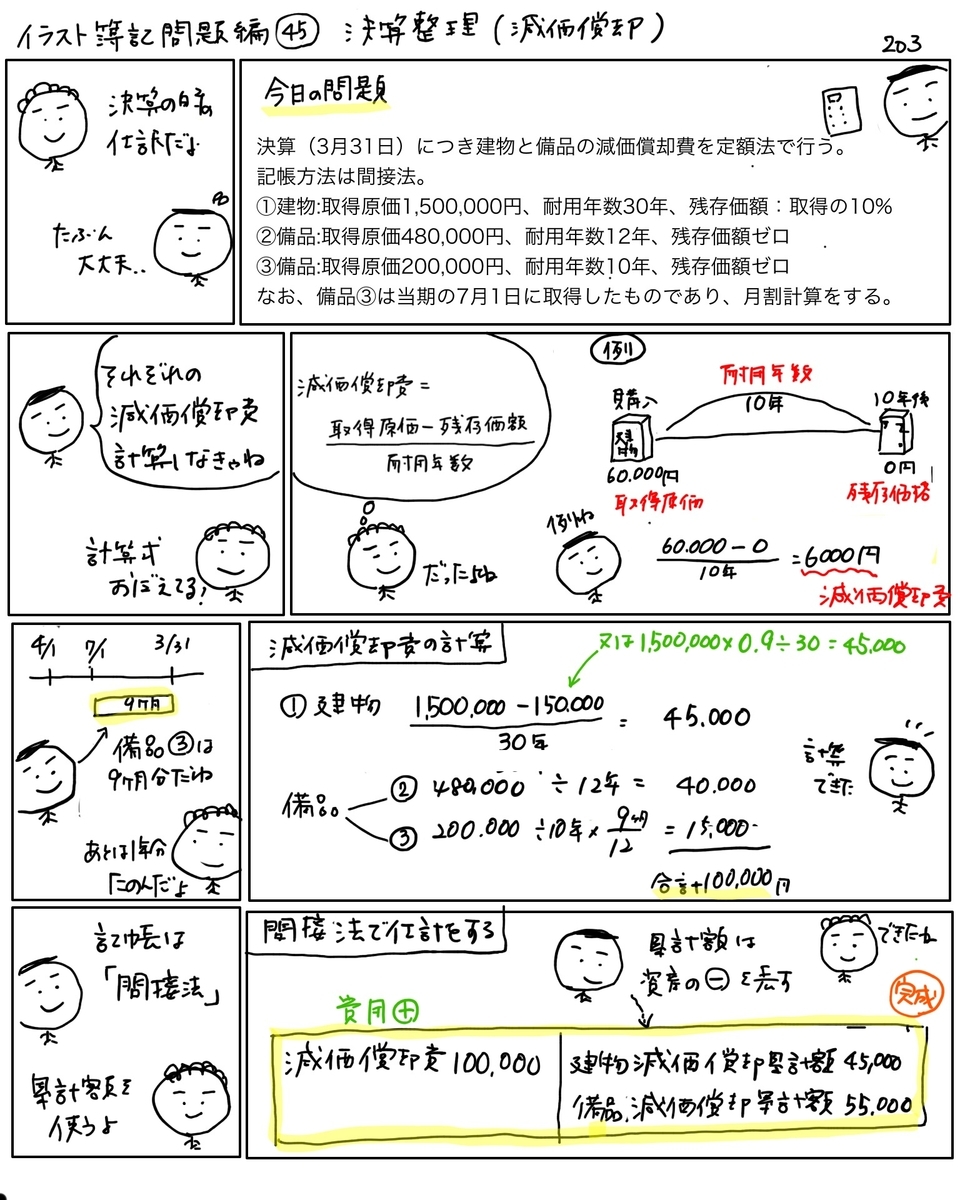 イラスト簿記問題編㊺ 決算整理(減価償却)
203
決算の時の
仕訳だよ
たぶん
大丈夫..
今日の問題
決算（3月31日）につき建物と備品の減価償却費を定額法で行う。
記帳方法は間接法。
①建物:取得原価1,500,000円、耐用年数30年、残存価額：取得の10%
②備品:取得原価480,000円、耐用年数12年、残存価額ゼロ
③備品:取得原価200,000円、耐用年数10年、残存価額ゼロ
なお、備品③は当期の7月1日に取得したものであり、月割計算をする。
それぞれの
減価償却費
計算しなきゃね
計算式
おぼえてる!
減価償却費=
取得原価-残存価額
耐用年数
だったよね
例)
耐用年数
購入
10年
10年後
建物
60.000円
0円
取得原価
残存価格
例ね
60.000-0
10年
=6000円
減価償却費
4/1 7/1 3/31
9ヶ月
備品③は
9ヶ月分だね
あとは1年分
たのんだよ
減価償却費の計算
又は1,500,000×0.9÷30=45,000
①建物
1,500,000-150.000
30年
= 45.000
備品
② 480,000 ÷12年= 40.000
③ 200.000 ÷10年× 9ヶ月
12
= 15,000
合計100,000円
計算
できた
記帳は
「間接法」
累計額を
使うよ
間接法で仕訳をする
累計額は
資産の㊀を表す
できたね
完成
費用⊕
減価償却費100,000
建物減価償却累計額45,000
備品減価償却累計額 55.000